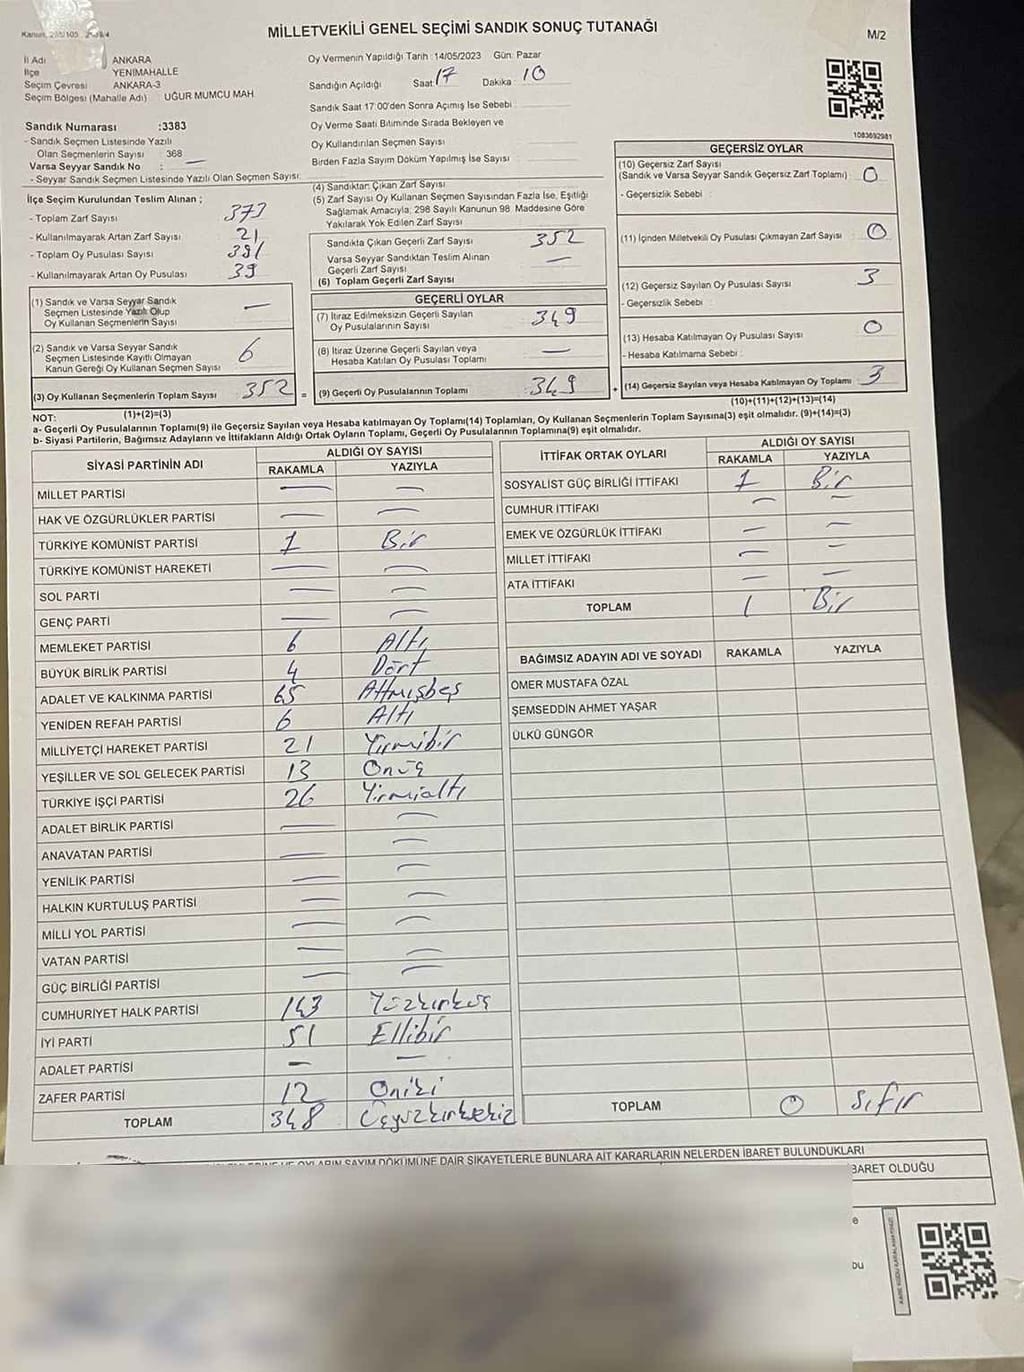 MİLLETVEKİLİ GENEL SEÇİMİ SANDIK SONUÇ TUTANAĞI
M/2
İl Adı ANKARA
İlçe YENİMAHALLE
Seçim Çevresi ANKARA-3
Seçim Bölgesi (Mahalle Adı) UĞUR MUMCU MAH
Oy Vermenin Yapıldığı Tarih : 14/05/2023 Gün: Pazar
Sandığın Açıldığı Saat: 17 Dakika : 10
Sandık Saat 17:00'den Sonra Açımış İse Sebebi :
Oy Verme Saati Bitiminde Sırada Bekleyen ve
Oy Kullandırılan Seçmen Sayısı :
Birden Fazla Sayım Döküm Yapılmış İse Sayısı :
1083692981
Sandık Numarası :3383
- Sandık Seçmen Listesinde Yazılı
Olan Seçmenlerin Sayısı : 368
Varsa Seyyar Sandık No : —
- Seyyar Sandık Seçmen Listesinde Yazılı Olan Seçmen Sayısı:
İlçe Seçim Kurulundan Teslim Alınan ;
- Toplam Zarf Sayısı 373
- Kullanılmayarak Artan Zarf Sayısı 21
- Toplam Oy Pusulası Sayısı 391
- Kullanılmayarak Artan Oy Pusulası 39
(1) Sandık ve Varsa Seyyar Sandık
Seçmen Listesinde Yazılı Olup
Oy Kullanan Seçmenlerin Sayısı —
(2) Sandık ve Varsa Seyyar Sandık
Seçmen Listesinde Kayıtlı Olmayan
Kanun Gereği Oy Kullanan Seçmen Sayısı 6
(3) Oy Kullanan Seçmenlerin Toplam Sayısı 352 =
(1)+(2)=(3)
(4) Sandıktan Çıkan Zarf Sayısı
(5) Zarf Sayısı Oy Kullanan Seçmen Sayısından Fazla İse, Eşitliği
Sağlamak Amacıyla; 298 Sayılı Kanunun 98. Maddesine Göre
Yakılarak Yok Edilen Zarf Sayısı
Sandıkta Çıkan Geçerli Zarf Sayısı 352
Varsa Seyyar Sandıktan Teslim Alınan
Geçerli Zarf Sayısı —
(6) Toplam Geçerli Zarf Sayısı
GEÇERLİ OYLAR
(7) İtiraz Edilmeksizin Geçerli Sayılan
Oy Pusulalarının Sayısı 349
(8) İtiraz Üzerine Geçerli Sayılan veya
Hesaba Katılan Oy Pusulası Toplamı —
(9) Geçerli Oy Pusulalarının Toplamı 349 +
GEÇERSİZ OYLAR
(10) Geçersiz Zarf Sayısı
(Sandık ve Varsa Seyyar Sandık Geçersiz Zarf Toplamı) : 0
- Geçersizlik Sebebi :
(11) İçinden Milletvekili Oy Pusulası Çıkmayan Zarf Sayısı : 0
(12) Geçersiz Sayılan Oy Pusulası Sayısı : 3
- Geçersizlik Sebebi :
(13) Hesaba Katılmayan Oy Pusulası Sayısı : 0
- Hesaba Katılmama Sebebi :
(14) Geçersiz Sayılan veya Hesaba Katılmayan Oy Toplamı : 3
(10)+(11)+(12)+(13)=(14)
NOT:
a- Geçerli Oy Pusulalarının Toplamı(9) ile Geçersiz Sayılan veya Hesaba katılmayan Oy Toplamı(14) Toplamları, Oy Kullanan Seçmenlerin Toplam Sayısına(3) eşit olmalıdır. (9)+(14)=(3)
b- Siyasi Partilerin, Bağımsız Adayların ve İttifakların Aldığı Ortak Oyların Toplamı, Geçerli Oy Pusulalarının Toplamına(9) eşit olmalıdır.
SİYASİ PARTİNİN ADI
ALDIĞI OY SAYISI
RAKAMLA YAZIYLA
MİLLET PARTİSİ — —
HAK VE ÖZGÜRLÜKLER PARTİSİ — —
TÜRKİYE KOMÜNİST PARTİSİ 1 Bir
TÜRKİYE KOMÜNİST HAREKETİ — —
SOL PARTİ — —
GENÇ PARTİ — —
MEMLEKET PARTİSİ 6 Altı
BÜYÜK BİRLİK PARTİSİ 4 Dört
ADALET VE KALKINMA PARTİSİ 65 Altmışbeş
YENİDEN REFAH PARTİSİ 6 Altı
MİLLİYETÇİ HAREKET PARTİSİ 21 Yirmibir
YEŞİLLER VE SOL GELECEK PARTİSİ 13 Onüç
TÜRKİYE İŞÇİ PARTİSİ 26 Yirmialtı
ADALET BİRLİK PARTİSİ — —
ANAVATAN PARTİSİ — —
YENİLİK PARTİSİ — —
HALKIN KURTULUŞ PARTİSİ — —
MİLLİ YOL PARTİSİ — —
VATAN PARTİSİ — —
GÜÇ BİRLİĞİ PARTİSİ — —
CUMHURİYET HALK PARTİSİ 143 Yüzkırküç
İYİ PARTİ 51 Ellibir
ADALET PARTİSİ — —
ZAFER PARTİSİ 12 Oniki
TOPLAM 348 Üçyüzkırksekiz
İTTİFAK ORTAK OYLARI
ALDIĞI OY SAYISI
RAKAMLA YAZIYLA
SOSYALİST GÜÇ BİRLİĞİ İTTİFAKI 1 Bir
CUMHUR İTTİFAKI — —
EMEK VE ÖZGÜRLÜK İTTİFAKI — —
MİLLET İTTİFAKI — —
ATA İTTİFAKI — —
TOPLAM 1 Bir
BAĞIMSIZ ADAYIN ADI VE SOYADI RAKAMLA YAZIYLA
ÖMER MUSTAFA ÖZAL
ŞEMSEDDİN AHMET YAŞAR
ÜLKÜ GÜNGÖR
TOPLAM 0 sıfır
OYLARIN SAYIM DÖKÜMÜNE DAİR ŞİKAYETLERLE BUNLARA AİT KARARLARIN NELERDEN İBARET BULUNDUKLARI
BARET OLDUĞU